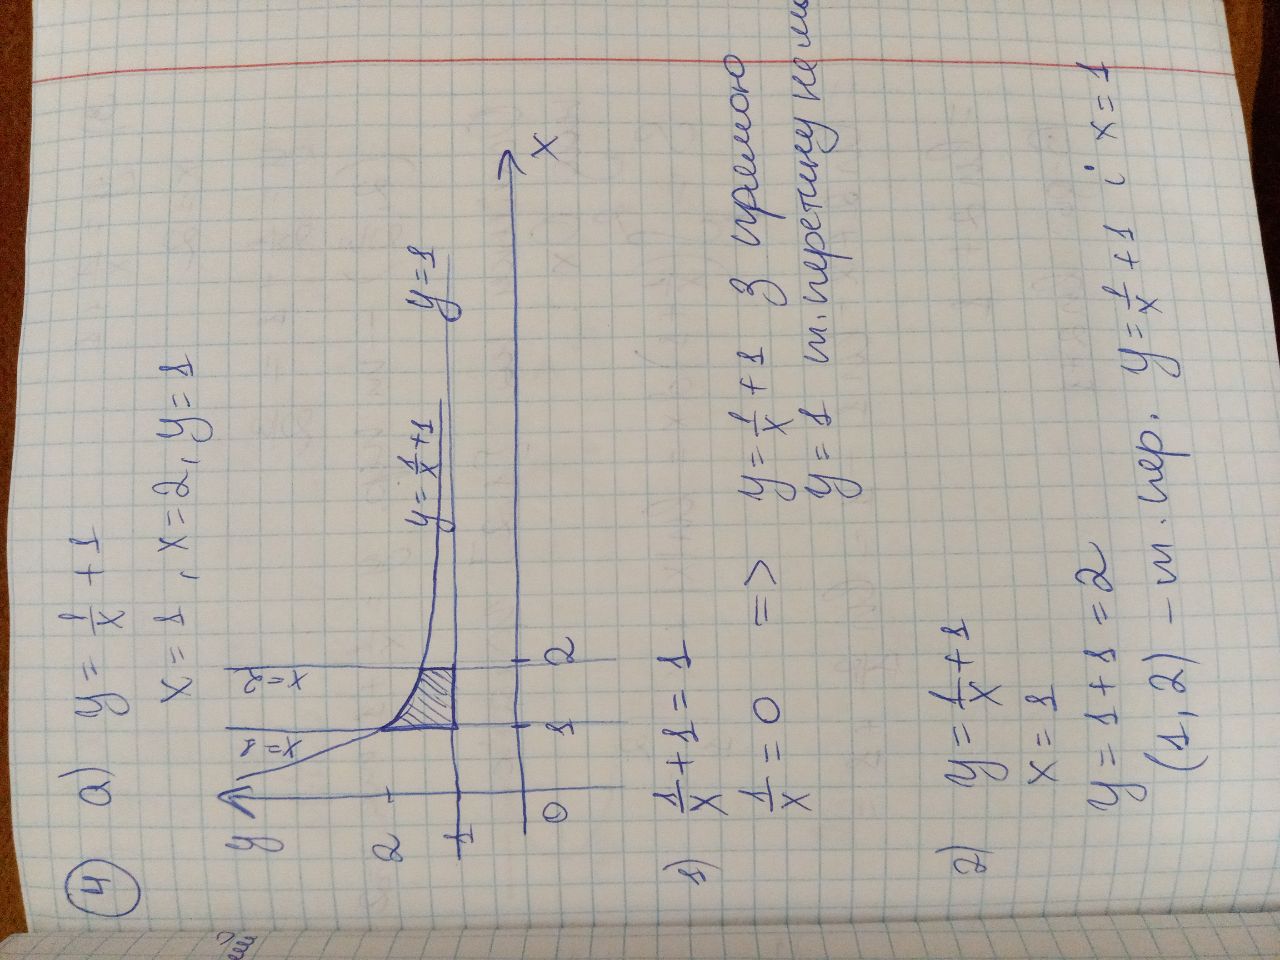 4 а) y = 1/x + 1
x = 1 , x = 2, y = 1
y
x=1
x=2
2
y = 1/x + 1
y = 1
1
0
1
2
x
1) 1/x + 1 = 1
1/x = 0 => y = 1/x + 1 з прямою
y = 1 т. перетину нема
2) y = 1/x + 1
x = 1
y = 1 + 1 = 2
(1, 2) – т. пер. y = 1/x + 1 і x = 1